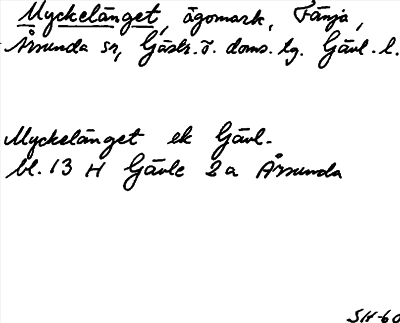 Myckelänget, ägomark, Fänja,
Årsunda sn, Gästr. ö. doms. lg. Gävl. l.
Myckelänget ek Gävl.
bl. 13 H Gävle 2a Årsunda
SH-60